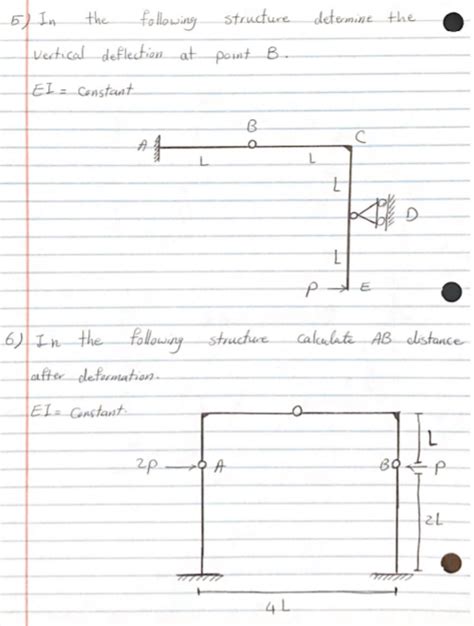 5) In the following structure determine the
vertical deflection at point B.
EI = constant
B
A
C
L
L
L
D
L
P
E
6) In the following structure calculate AB distance
after deformation.
EI = Constant.
L
2P
A
B
P
2L
4L